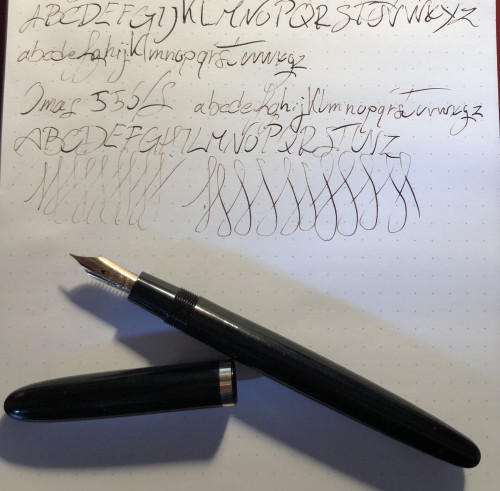 ABCDEFGIJKLMNOPQRSTUVWXYZ
abcdefghijklmnopqrstuvwxyz
Omas 555/S abcdefghijklmnopqrstuvwxyz
ABCDEFGHIJLMNOPQRSTUVZ